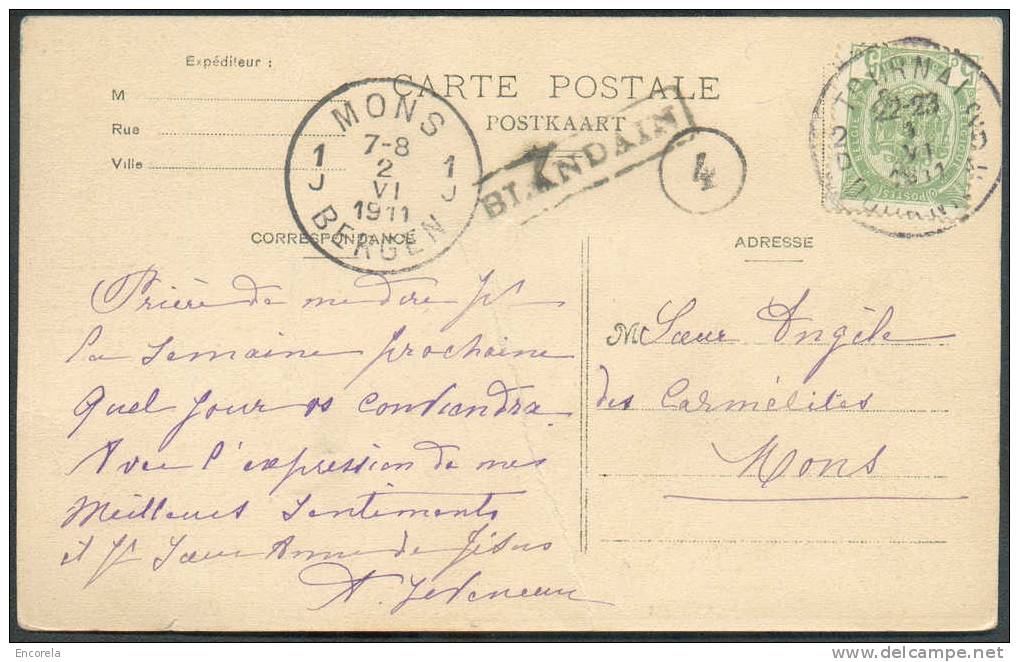 Expéditeur :
M
Rue
Ville
CARTE POSTALE
POSTKAART
MONS
7-8
2
VI
1911
BERGEN
1 J
1 J
BLANDAIN
4
TOURNAI
22-23
1
VI
1911
DOORNIJK
CORRESPONDANCE
ADRESSE
Prière de me dire
la semaine prochaine
quel jour vs conviendra
Avec l'expression de mes
Meilleurs sentiments
et Sœur Anne de Jésus
M Sœur Angèle
des Carmélites
Mons
Encorela
www.delcampe.net